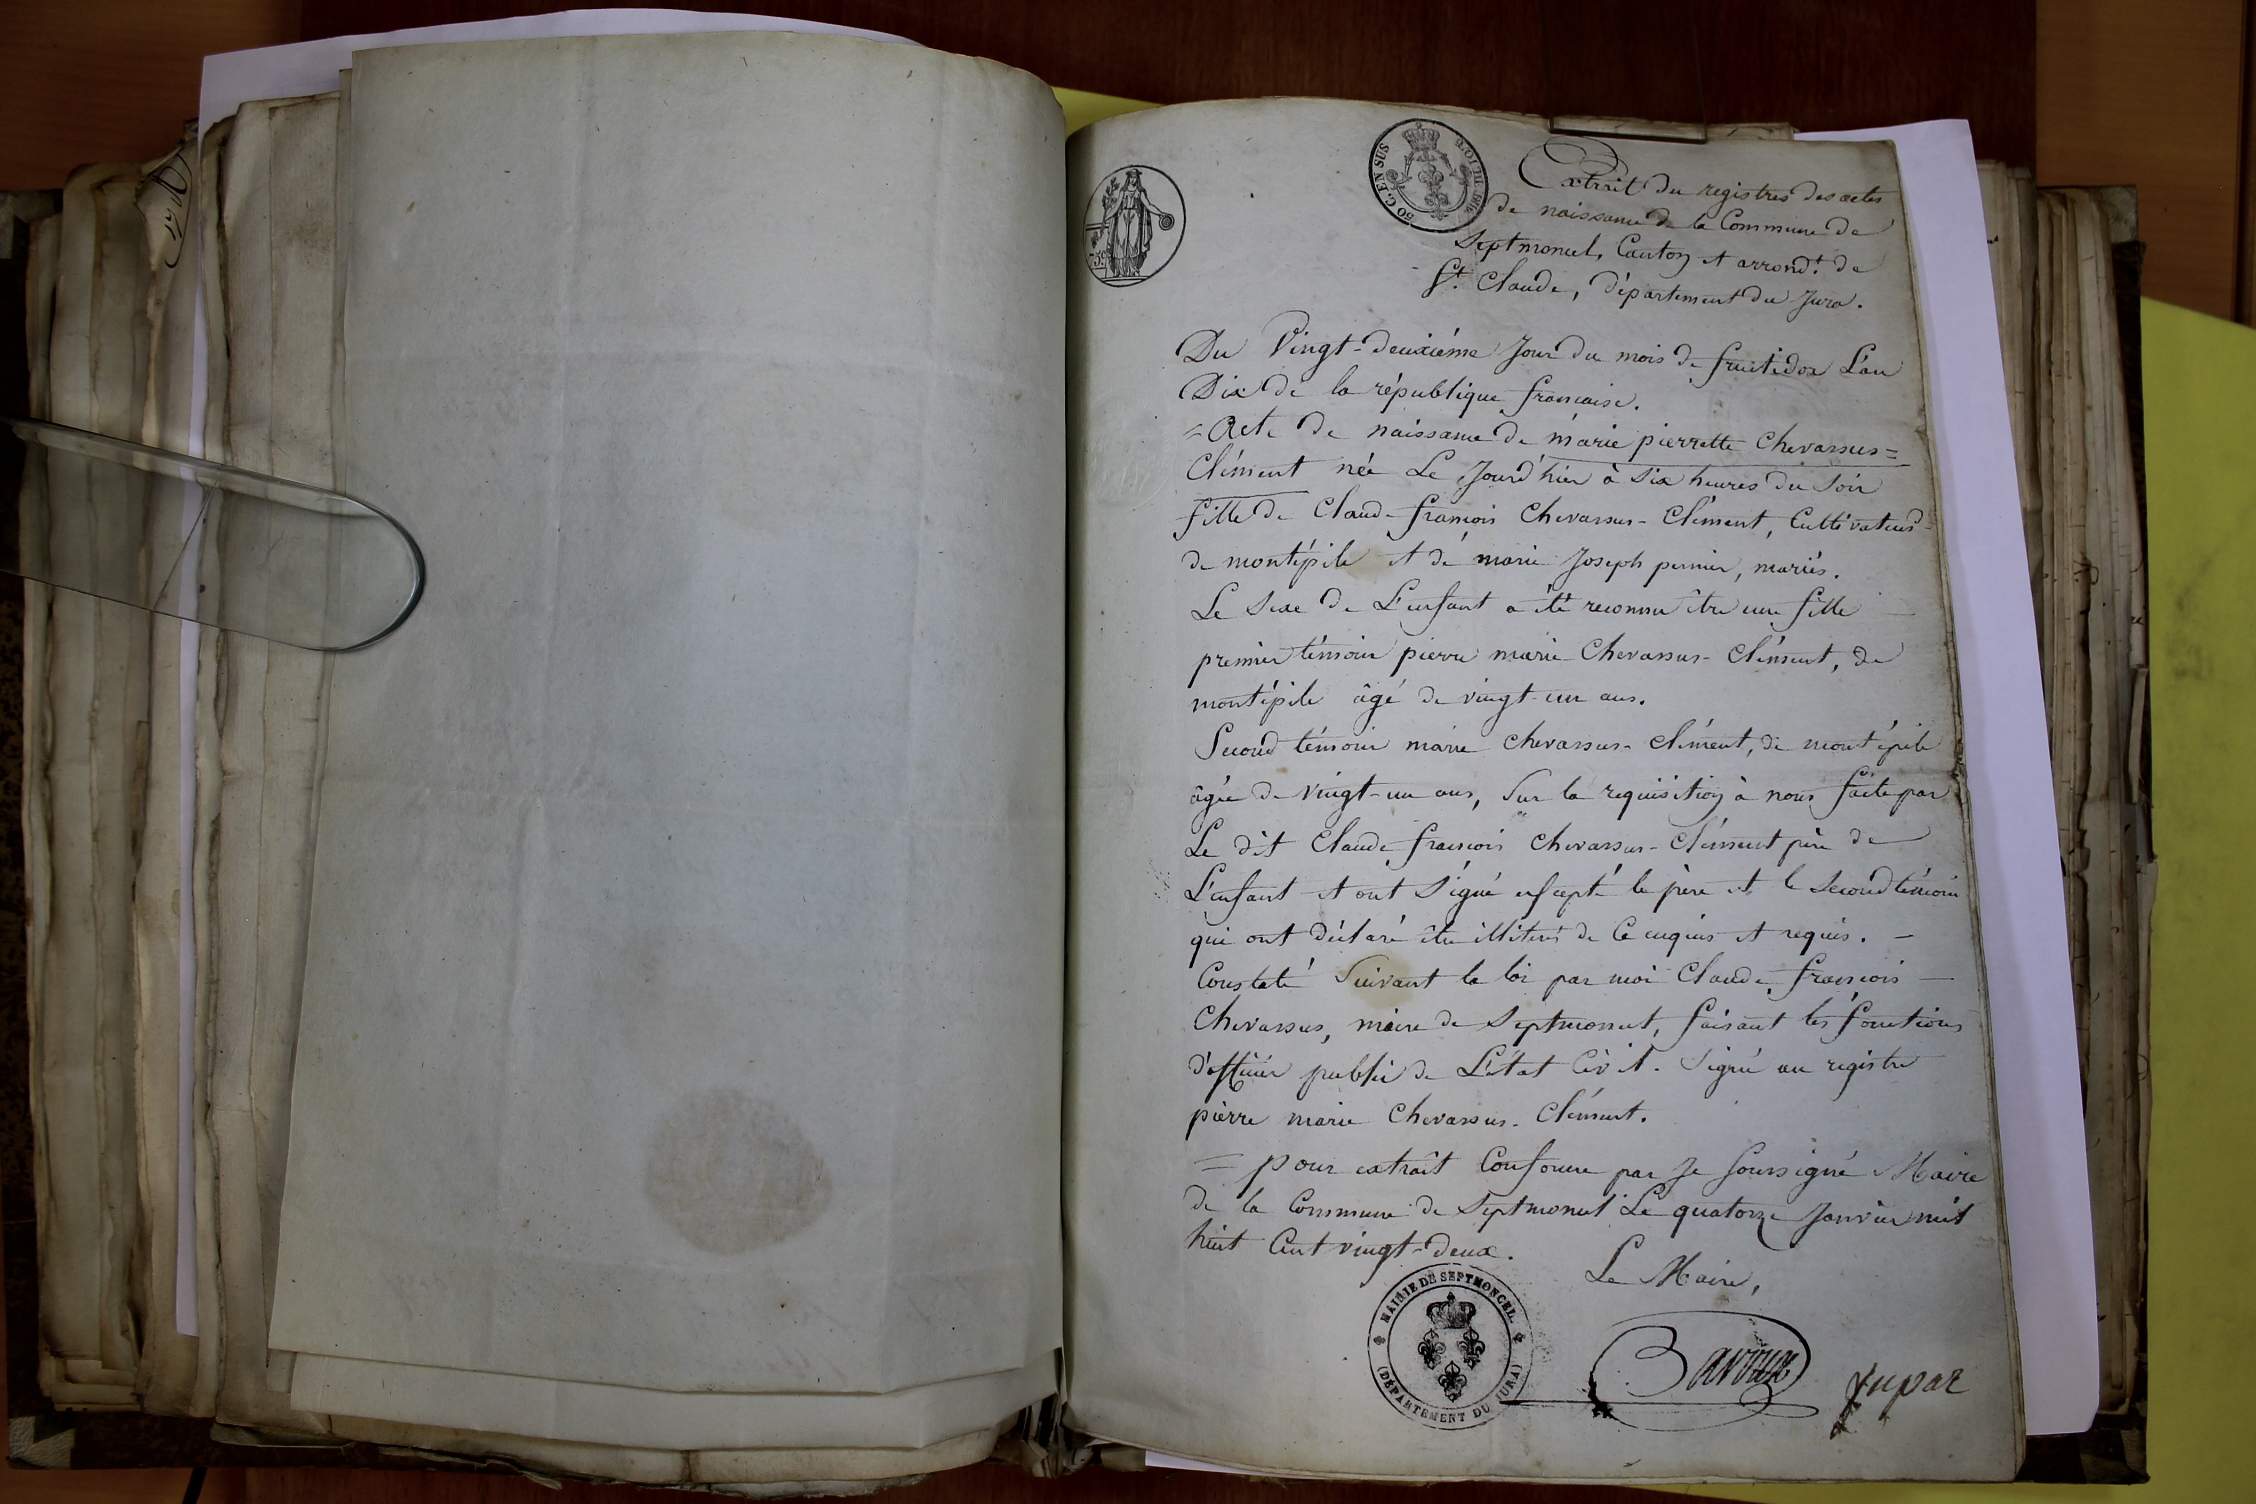 50 C. EN SUS
Extrait du registres des actes
de naissance de la Commune de
Septmoncel, Canton et arrond.t de
St. Claude, département du Jura.
Du Vingt-deuxiéme Jour du mois de fruitidor L'an
Dix de la république francaise.
= Acte de naissance de marie pierrette Chevassus=
Clément née Le Jourd'hier à Six heures du Soir
fille de Claude-francois Chevassus-Clément, Cultivateur
de montépile et de marie Joseph permier, mariés.
Le Sexe de L'enfant a été reconnu être une fille
premier témoin pierre marie Chevassus-Clément, de
montépile âgé de vingt-un ans.
Second témoin marie Chevassus-Clément, de montépile
âgée de vingt-un ans, Sur la requisition à nous faite par
Le dit Claude francois Chevassus-Clément père de
L'enfant et ont Signé excepté le père et le Second témoin
qui ont déclaré être illiterés de Ce enquis et requis. -
Constaté Suivant la loi par moi Claude francois -
Chevassus, maire de Septmoncel, faisant les fonctions
d'officier public de L'état Civil. Signé au registre
pièrre marie Chevassus-Clément.
= pour extrait Conforme par Je Soussigné Maire
de la Commune de Septmoncel Le quatorze Janvier mil
huit Cent vingt-deux.
Le Maire,
MAIRIE DE SEPTMONCEL
(DÉPARTEMENT DU JURA)